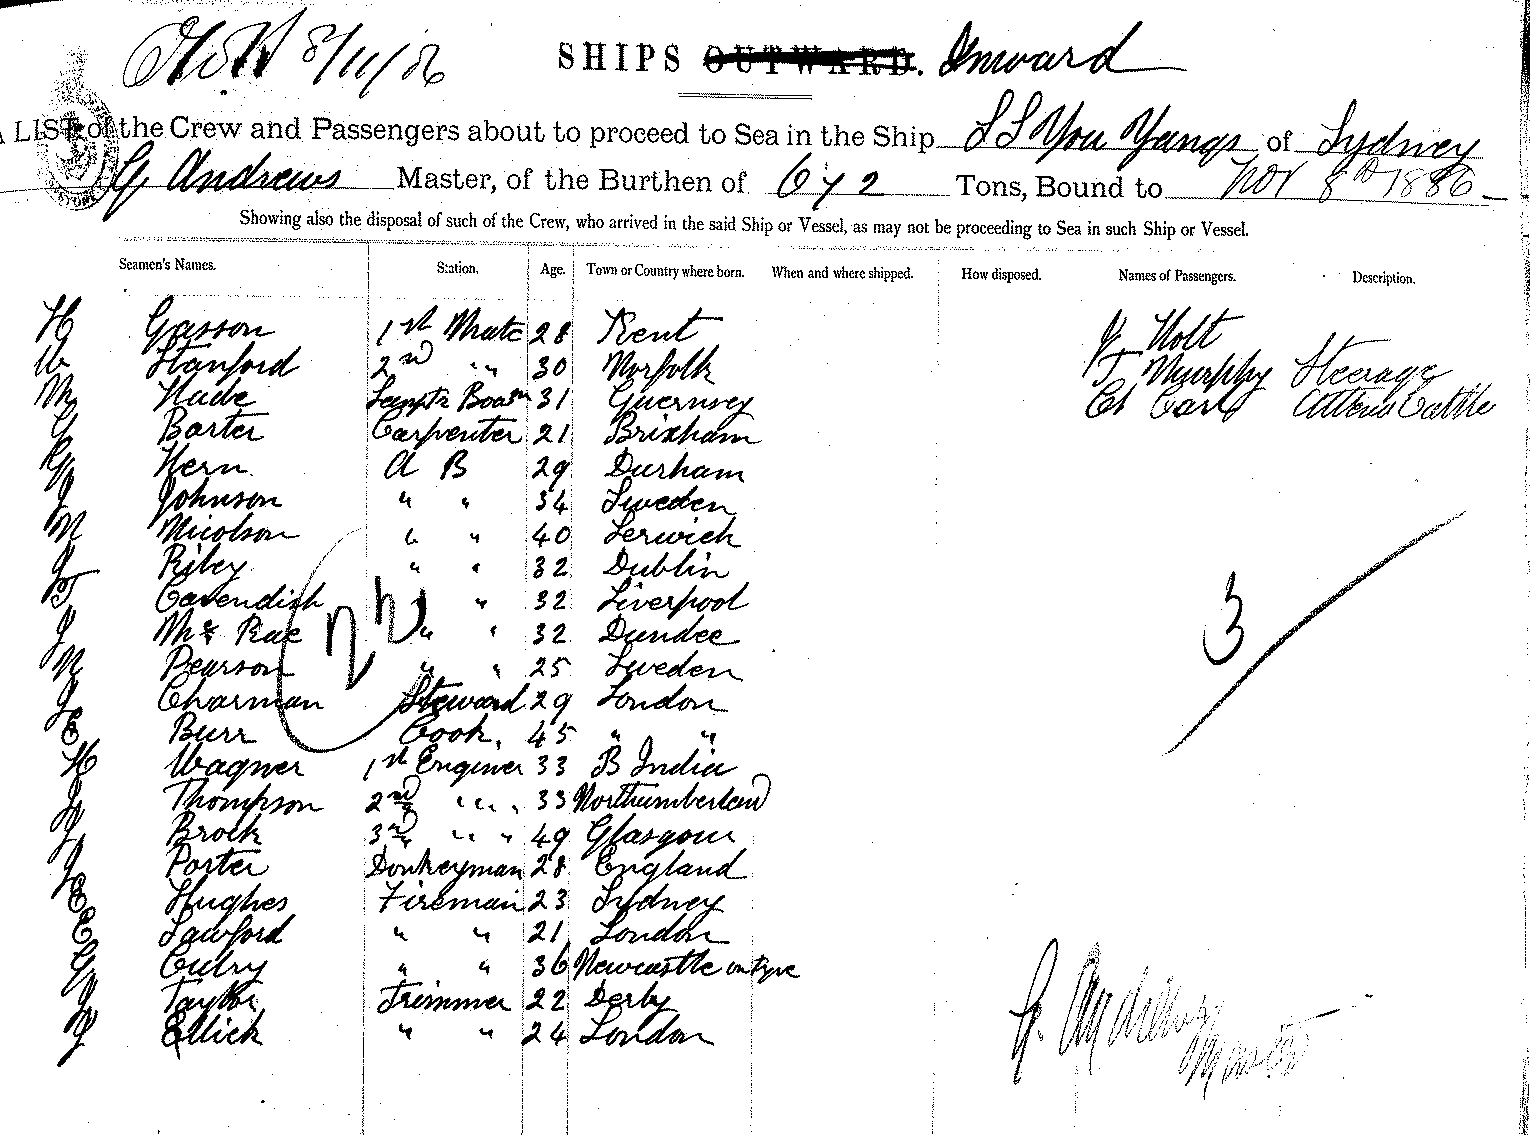 8/11/86
SHIPS OUTWARD. Inward
A LIST of the Crew and Passengers about to proceed to Sea in the Ship SS You Yangs of Sydney
G Andrews Master, of the Burthen of 672 Tons, Bound to Nov 8th 1886
Showing also the disposal of such of the Crew, who arrived in the said Ship or Vessel, as may not be proceeding to Sea in such Ship or Vessel.
Seamen's Names. Station. Age. Town or Country where born. When and where shipped. How disposed. Names of Passengers. Description.
H Gasson 1st Mate 28 Kent J Holt
W Stanford 2nd " " 30 Norfolk T Murphy Steerage
M Nade Lamptr Boasn 31 Guernsey Ch Carl Attens Cattle
G Barter Carpenter 21 Brixham
Hern A B 29 Durham
J Johnson " " 34 Sweden
N Nicolson " " 40 Lerwick
J Riley " " 32 Dublin
T Cavendish " " 32 Liverpool
J McRae " " 32 Dundee
N Pearson " " 25 Sweden
J Charman Steward 29 London
E Burr Cook. 45 " "
H Wagner 1st Enginer 33 B India
J Thompson 2nd " " 33 Northumberland
J Brock 3rd " " 49 Glasgow
J Porter Donkeyman 28 England
E Hughes Fireman 23 Sydney
E Lawford " " 21 London
G Culry " " 36 Newcastle on Tyne
J Taylor Trimmer 22 Derby
J Ellick " " 24 London
22
3
G. Andrews
Master